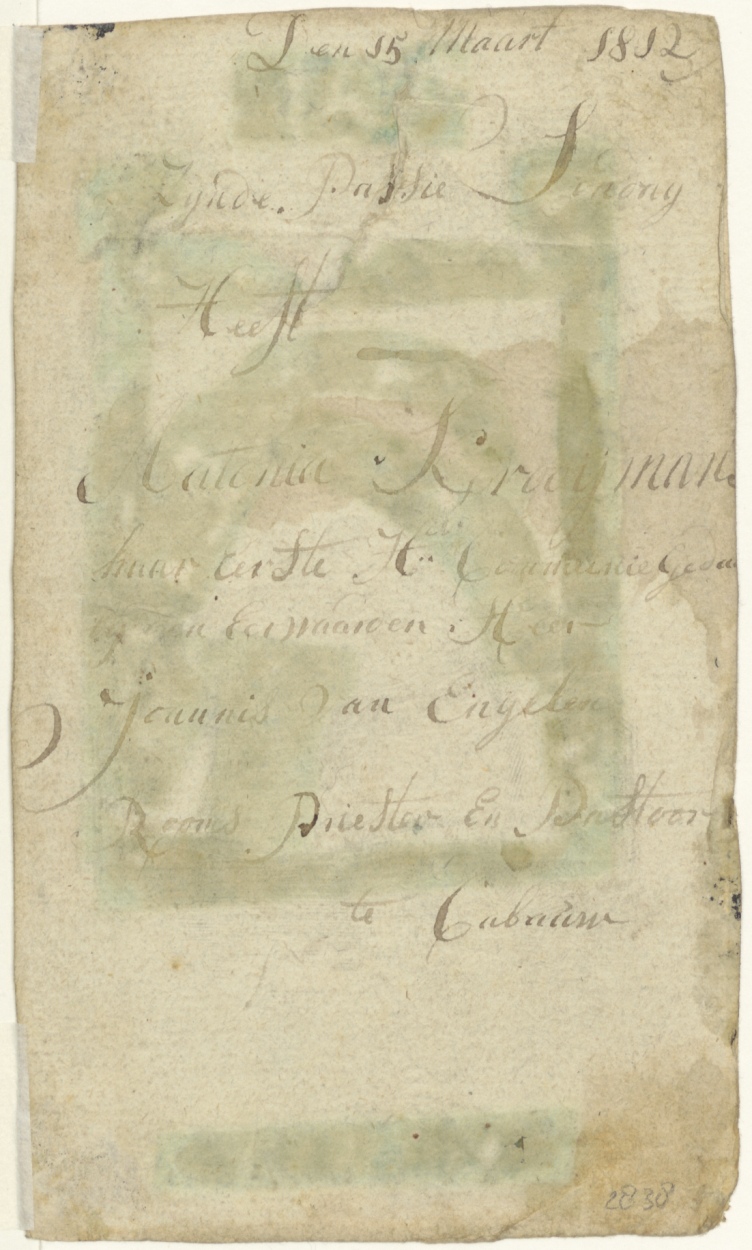 Den 15 Maart 1812
Zynde Passie Sondag
Heeft
Matonia Krooymans
haar Eerste H. Communie Gedaan
Eerwaarden Heer
Joannis Van Engelen
Rooms Priester En Pastoor
te Cabauw
2838